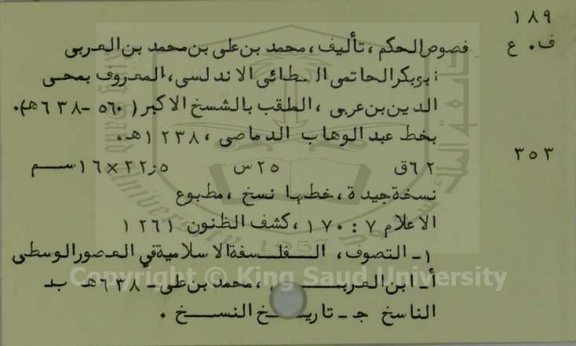 ١٨٩
ف . ع فصوص الحكم ، تأليف ، محمد بن على بن محمد بن العربى
ابوبكر الحاتمى الطائى الاندلسى ، المعروف بمحى
الدين بن عربى ، الملقب بالشسخ الاكبر ( ٥٦٠ - ٦٣٨هـ ) .
بخط عبد الوهاب الدماصى ، ١٢٣٨هـ .
٣٥٣
٦٢ق ٢٥س ٢٢٫٥×١٦سم
نسخة جيدة ، خطها نسخ ، مطبوع
الاعلام ٧ : ١٧٠ ، كشف الظنون ١٢٦١
١- التصوف ، الفلسفة الاسلامية في العصور الوسطى
أ- ابن العربـى ، محمد بن على - ٦٣٨هـ ب-
الناسخ جـ - تاريخ النسخ .
Copyright © King Saud University